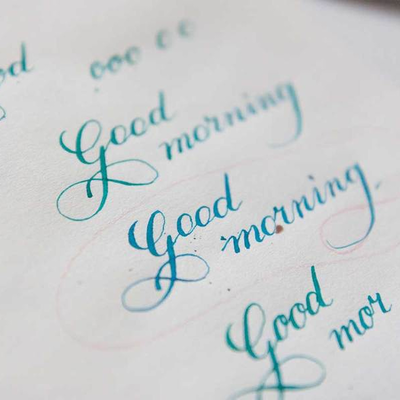 od
ooo o o
Good
morning
Good
morning.
Good
mor